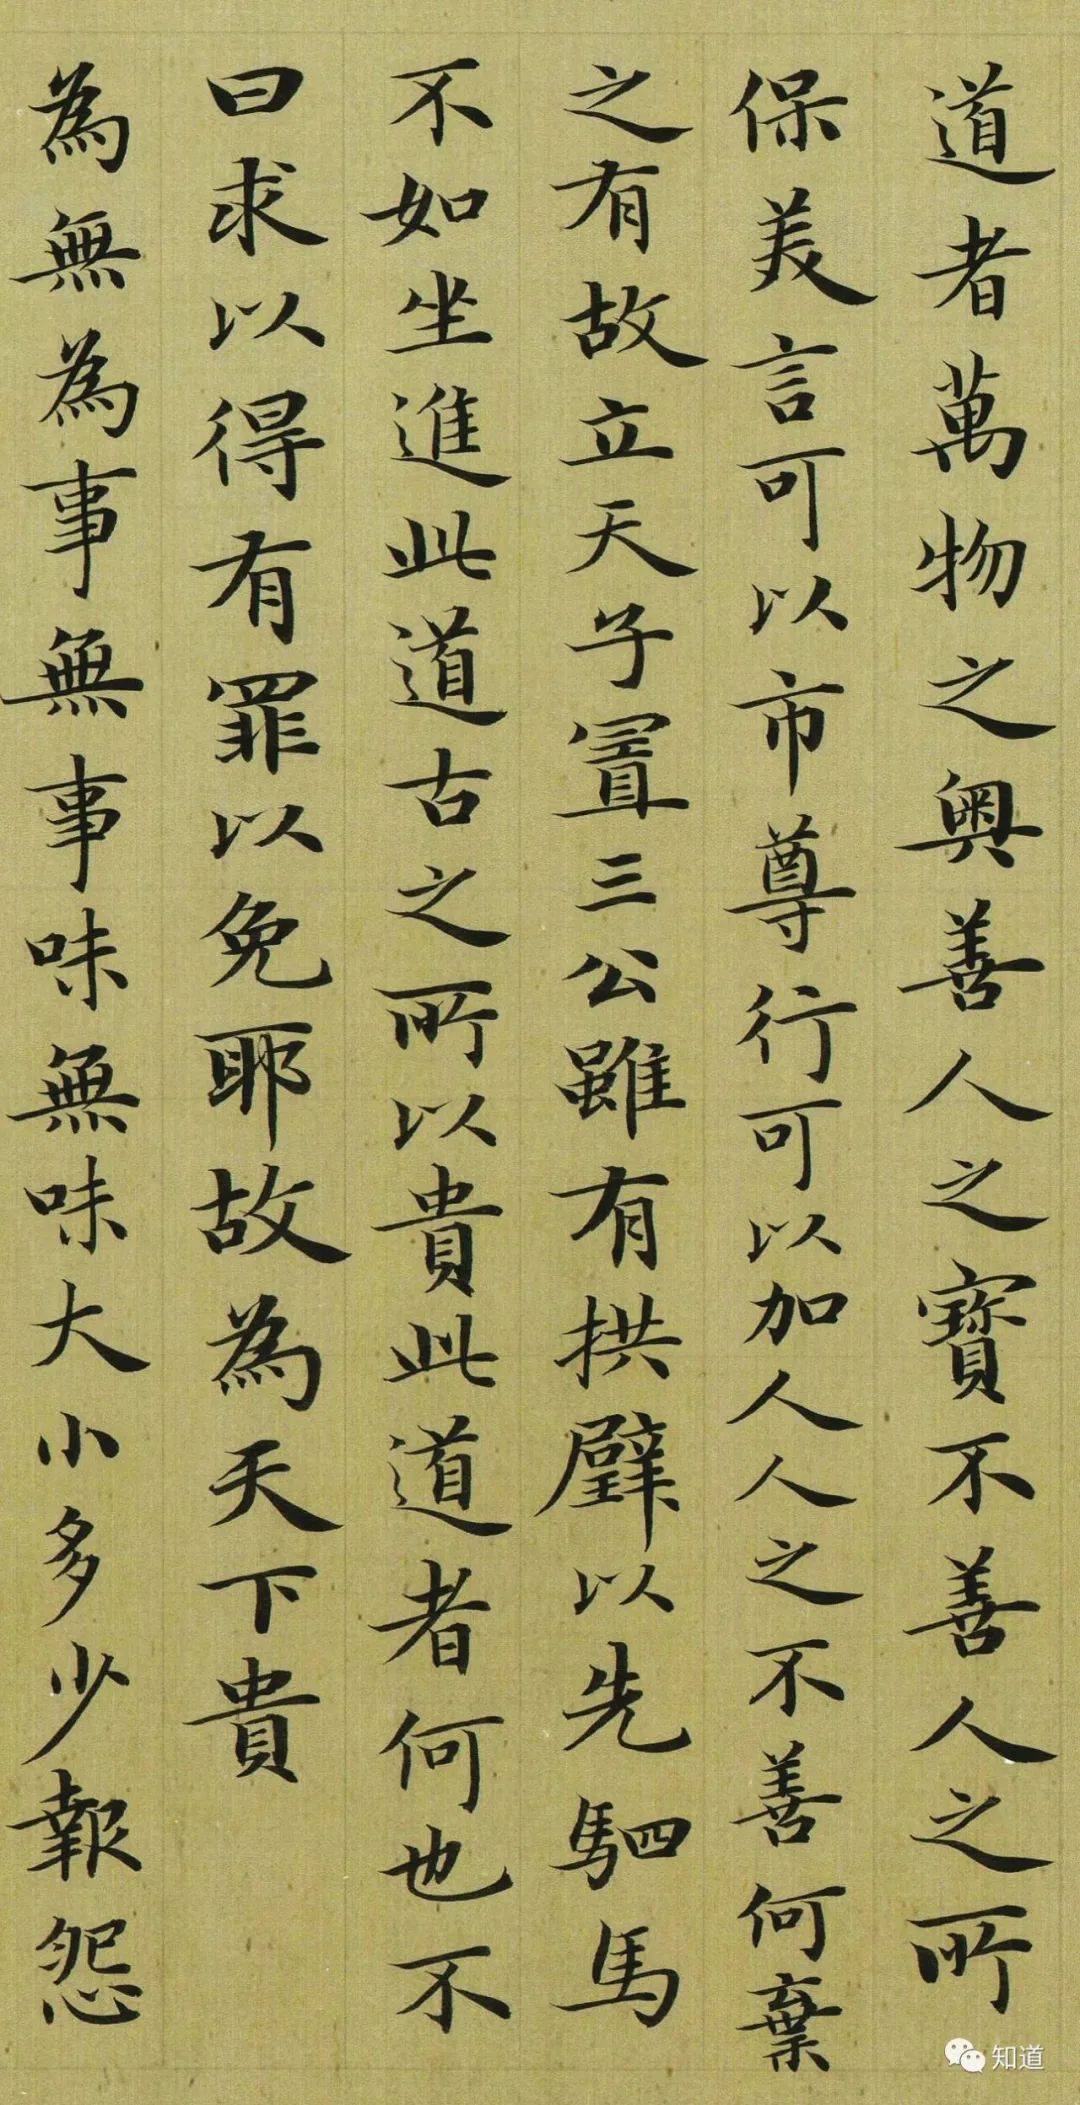 道者萬物之奧善人之寶不善人之所
保美言可以市尊行可以加人人之不善何棄
之有故立天子置三公雖有拱璧以先駟馬
不如坐進此道古之所以貴此道者何也不
曰求以得有罪以免耶故為天下貴
為無為事無事味無味大小多少報怨
知道